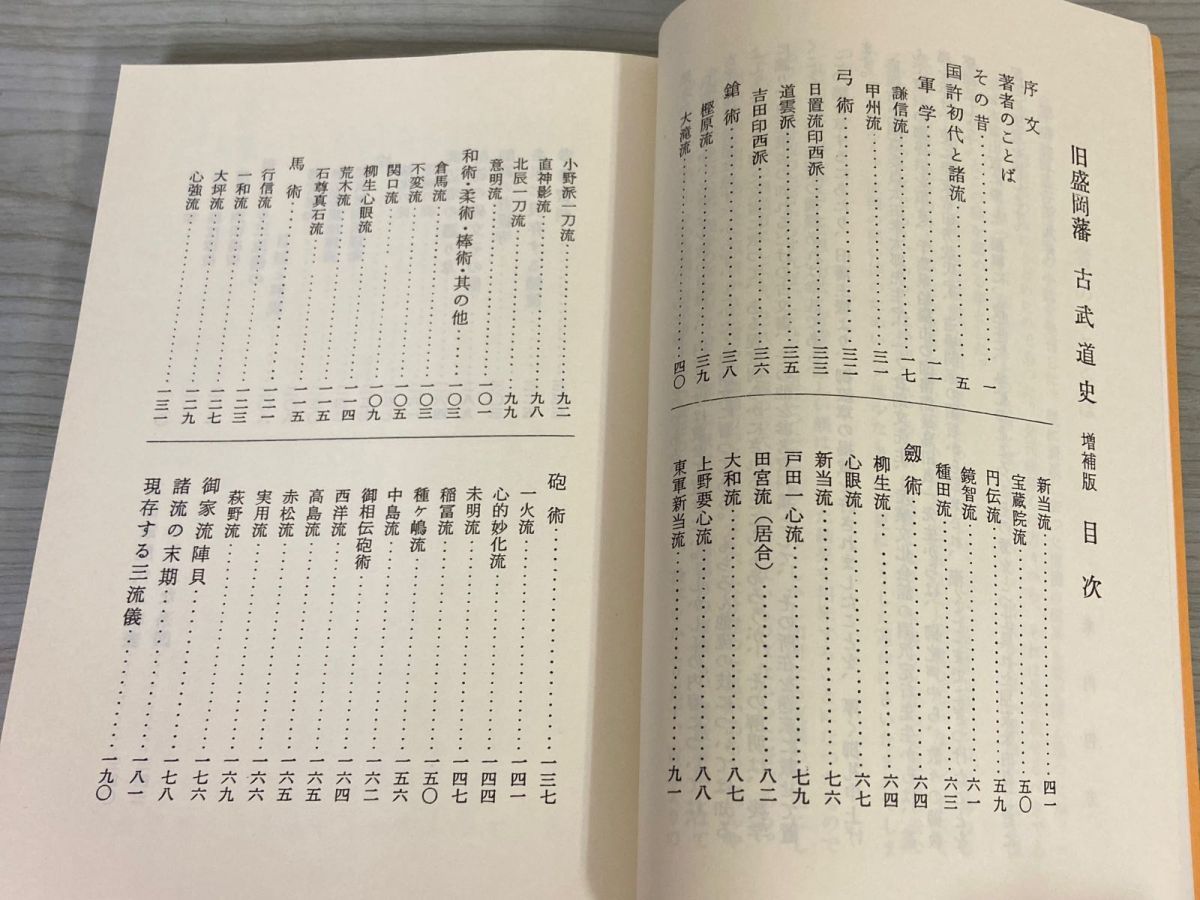 旧盛岡藩 古武道史 増補版 目次
序文
著者のことば
その昔……一
国許初代と諸流……五
軍学……一一
謙信流……一七
甲州流……三一
弓術……三二
日置流印西派……三三
道雲派……三五
吉田印西派……三六
鎗術……三八
樫原流……三九
大滝流……四〇
新当流……四一
宝蔵院流……五〇
円伝流……五九
鏡智流……六一
種田流……六三
劔術……六四
柳生流……六四
心眼流……六七
新当流……七六
戸田一心流……七九
田宮流(居合)……八二
大和流……八七
上野要心流……八八
東軍新当流……九一
小野派一刀流……九二
直神影流……九八
北辰一刀流……九九
意明流……一〇一
和術・柔術・棒術・其の他……一〇三
倉馬流……一〇三
不変流……一〇五
関口流……一〇九
柳生心眼流……一一四
荒木流……一一五
石尊真石流……一一五
馬術……一二一
行信流……一二三
一和流……一二七
大坪流……一二九
心強流……一三一
砲術……一三七
一火流……一四一
心的妙化流……一四四
未明流……一四七
稲冨流……一五〇
種ヶ嶋流……一五六
中島流……一六二
御相伝砲術……一六四
西洋流……一六五
高島流……一六五
赤松流……一六六
実用流……一六九
荻野流……一七六
御家流陣貝……一七八
諸流の末期……一八一
現存する三流儀……一九〇